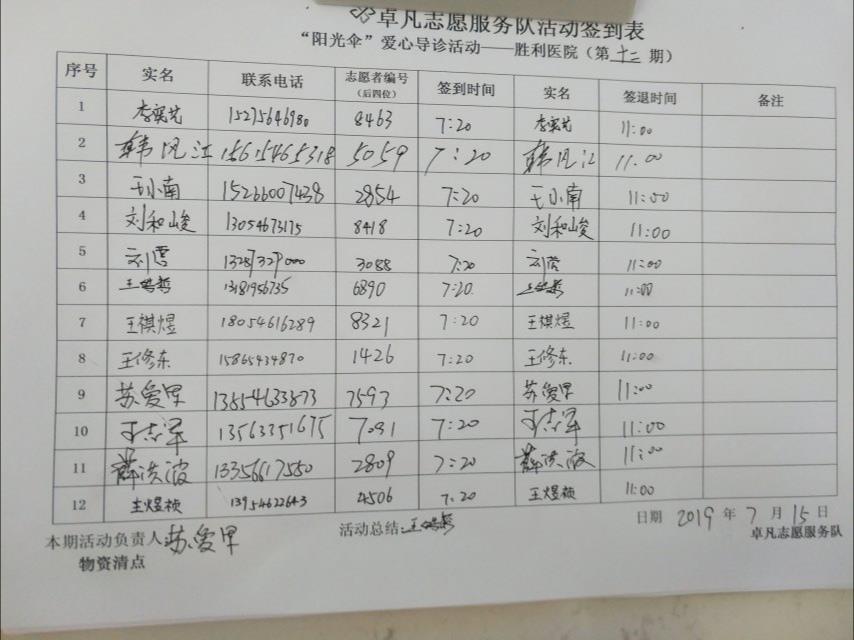 卓凡志愿服务队活动签到表
“阳光伞”爱心导诊活动——胜利医院（第十二期）
序号 实名 联系电话 志愿者编号（后四位） 签到时间 实名 签退时间 备注
1 李奕艺 15275646980 8463 7:20 李奕艺 11:00
2 韩风江 15615465318 5059 7:20 韩风江 11.00
3 于小南 15266007438 2854 7:20 于小南 11:00
4 刘和峻 13054673175 8418 7:20 刘和峻 11:00
5 刘蕾 13287327000 3088 7:20 刘蕾 11:00
6 13181956735 6890 7:20. 11:00
7 王祺煜 18054616289 8321 7:20 王祺煜 11:00
8 王修东 15865434870 1426 7:20 王修东 11:00
9 苏爱军 13854633873 7593 7:20 苏爱军 11:00
10 于志军 13563351675 7091 7:20 于志军 11:00
11 薛洪波 13356617550 2809 7:20 薛洪波 11:00
12 王煜祯 13954622643 4506 7.20 王煜祯 11:00
本期活动负责人 苏爱军 活动总结: 日期 2019年7月15日
物资清点 卓凡志愿服务队